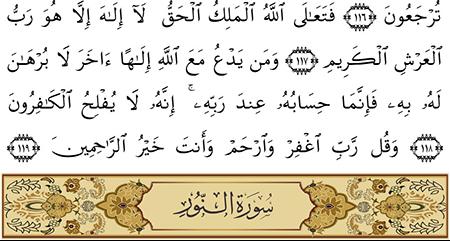 تُرْجَعُونَ ﴿١١٦﴾ فَتَعَٰلَى ٱللَّهُ ٱلْمَلِكُ ٱلْحَقُّ ۖ لَآ إِلَٰهَ إِلَّا هُوَ رَبُّ
ٱلْعَرْشِ ٱلْكَرِيمِ ﴿١١٧﴾ وَمَن يَدْعُ مَعَ ٱللَّهِ إِلَٰهًا ءَاخَرَ لَا بُرْهَٰنَ
لَهُۥ بِهِۦ فَإِنَّمَا حِسَابُهُۥ عِندَ رَبِّهِۦٓ ۚ إِنَّهُۥ لَا يُفْلِحُ ٱلْكَٰفِرُونَ
﴿١١٨﴾ وَقُل رَّبِّ ٱغْفِرْ وَٱرْحَمْ وَأَنتَ خَيْرُ ٱلرَّٰحِمِينَ ﴿١١٩﴾
سُورَةُ النُّورِ